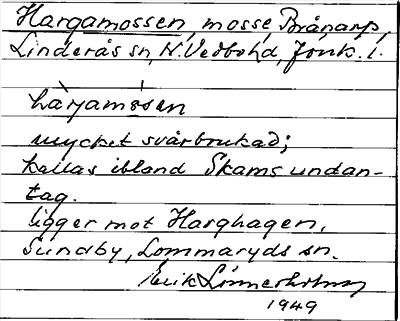 Hargamossen, mosse, Brånarp,
Linderås sn, N. Vedbohd, Jönk. l.
hàrjamåsen
mycket svårbrukad;
kallas ibland Skams undan-
tag.
ligger mot Harghagen,
Sundby, Lommaryds sn.
Erik Lönnerholm
1949